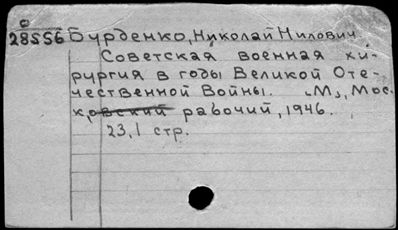 О
28556 Бурденко, Николай Нилович.
Советская военная хи-
рургия в годы Великой Оте-
чественной Войны. "М", Мос.
ковский рабочий, 1946.
23,1 стр.